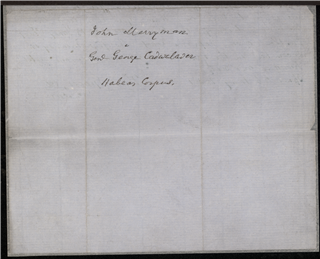 John Merryman
v
Genl George Cadwalader
Habeas Corpus.